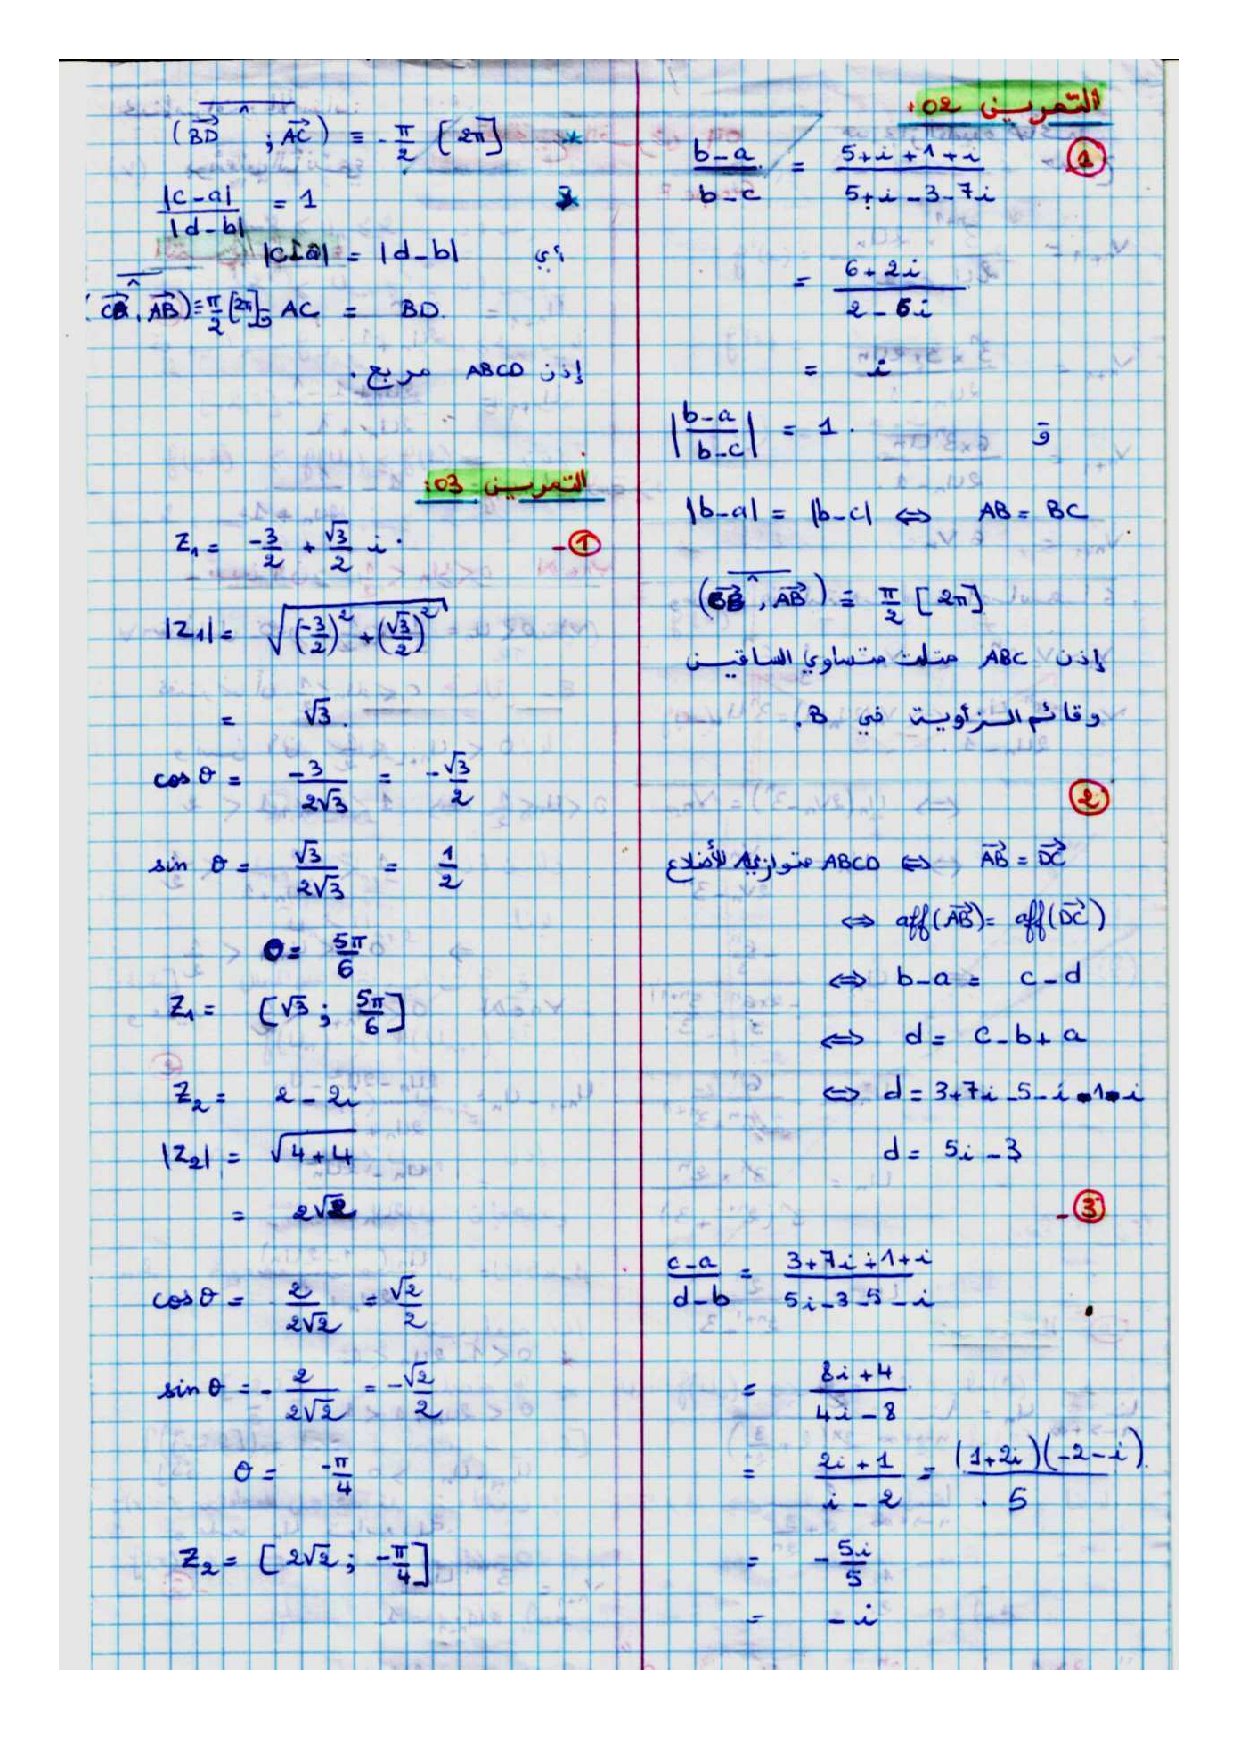 التمرين 02:
1
(b-a)/(b-c) = (5+i+1+i)/(5+i-3-7i)
= (6+2i)/(2-6i)
= i
و |(b-a)/(b-c)| = 1.
|b-a| = |b-c| ⇔ AB = BC
(CB→ , AB→) ≡ π/2 [2π]
إذن ABC مثلث متساوي الساقين
وقائم الزاوية في B.
2
ABCD متوازي الأضلاع ⇔ AB→ = DC→
⇔ aff(AB→) = aff(DC→)
⇔ b-a = c-d
⇔ d = c-b+a
⇔ d = 3+7i-5-i-1-i
d = 5i-3
3-
(c-a)/(d-b) = (3+7i+1+i)/(5i-3-5-i)
= (8i+4)/(4i-8)
= (2i+1)/(i-2) = (1+2i)(-2-i)/5
= -5i/5
= -i
(BD→ ; AC→) ≡ -π/2 [2π]
|c-a|/|d-b| = 1
أي |c-a| = |d-b|
(CB→, AB→) ≡ π/2 [2π] و AC = BD
إذن ABCD مربع.
التمرين 03:
1- Z₁ = -3/2 + √3/2 i.
|Z₁| = √((-3/2)² + (√3/2)²)
= √3.
cos θ = -3/(2√3) = -√3/2
sin θ = √3/(2√3) = 1/2
θ = 5π/6
Z₁ = [√3 ; 5π/6]
Z₂ = 2 - 2i
|Z₂| = √(4+4)
= 2√2
cos θ = 2/(2√2) = √2/2
sin θ = -2/(2√2) = -√2/2
θ = -π/4
Z₂ = [2√2 ; -π/4]